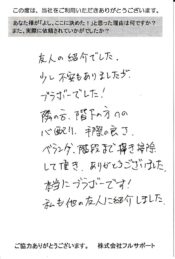 この度は、当社をご利用いただきありがとうございます。
あなた様が「よし、ここに決めた!」と思った理由は何ですか?
また、実際に依頼されていかがでしたか?
友人の紹介でした。
少し不安もありましたが、
ブラボーでした!
隣の方、階下の方への
心配り、手際の良さ、
ベランダ、階段まで掃き掃除
して頂き、ありがとう
ございました。
本当にブラボーです!
私も他の友人に紹介しました。
ご協力ありがとうございます。 株式会社フルサポート